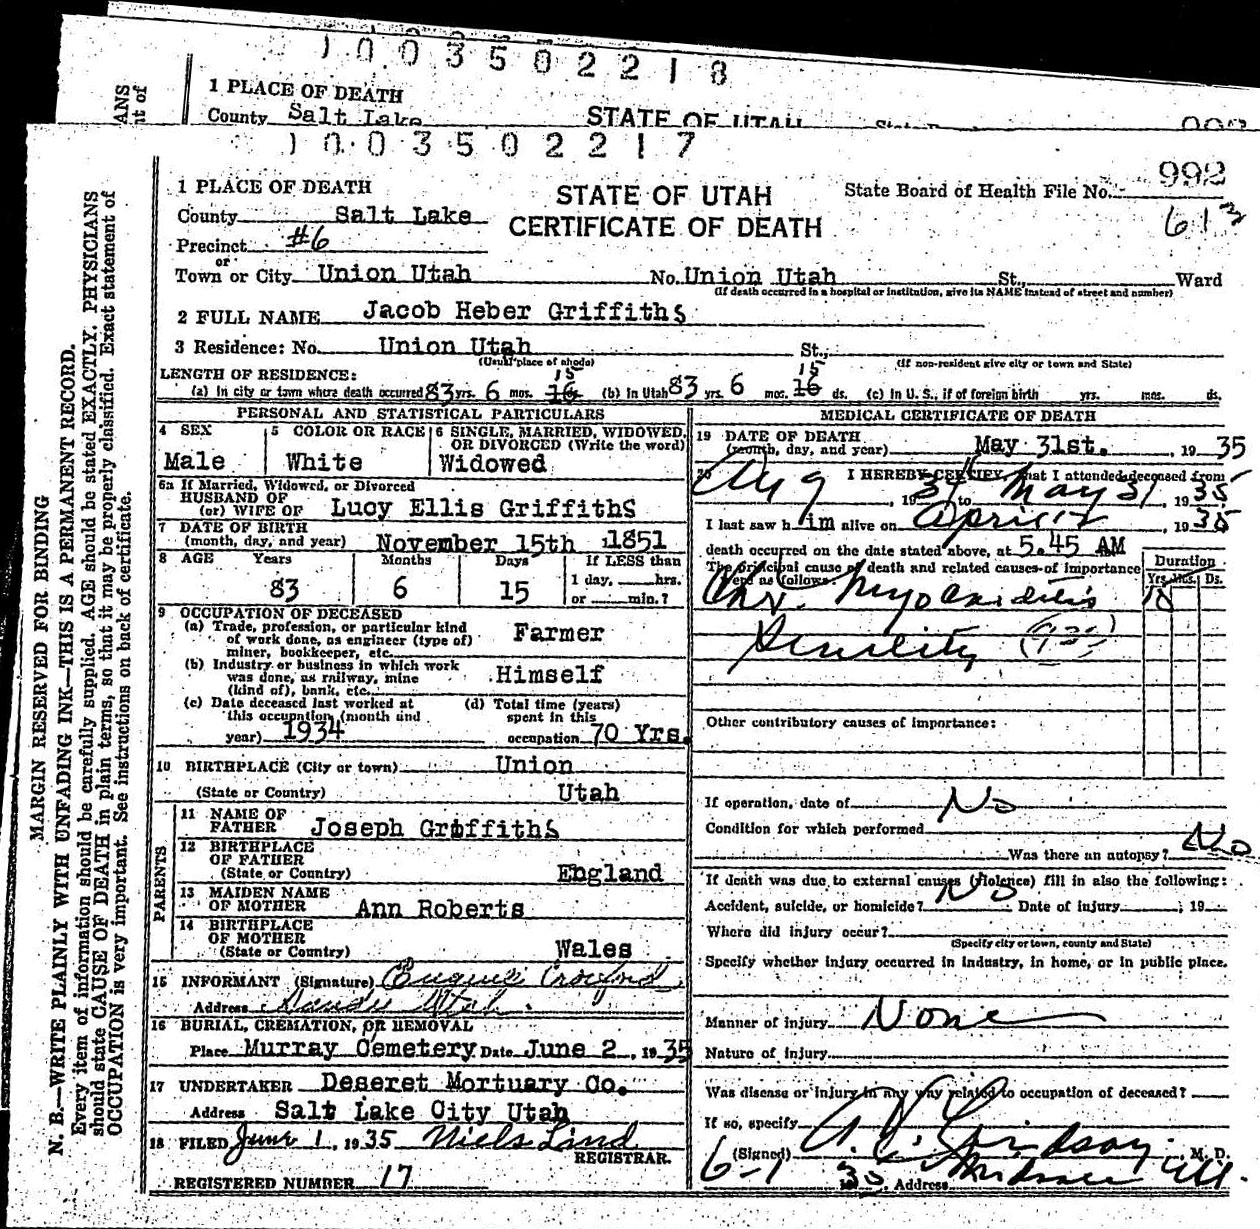 1003502218
1 PLACE OF DEATH
County Salt Lake
STATE OF UTAH
1003502217
992
613
1 PLACE OF DEATH
STATE OF UTAH
CERTIFICATE OF DEATH
State Board of Health File No.
County Salt Lake
Precinct #6
or
Town or City Union Utah No. Union Utah St., Ward
(If death occurred in a hospital or institution, give its NAME instead of street and number)
2 FULL NAME Jacob Heber Griffiths
3 Residence: No. Union Utah St.,
(Usual place of abode) (If non-resident give city or town and State)
LENGTH OF RESIDENCE: 15 15
(a) In city or town where death occurred 83 yrs. 6 mos. 16 (b) in Utah 83 yrs. 6 mos. 16 ds. (c) In U. S., if of foreign birth yrs. mos. ds.
PERSONAL AND STATISTICAL PARTICULARS
4 SEX Male
5 COLOR OR RACE White
6 SINGLE, MARRIED, WIDOWED, OR DIVORCED (Write the word) Widowed
6a If Married, Widowed, or Divorced
HUSBAND OF
(or) WIFE OF Lucy Ellis Griffiths
7 DATE OF BIRTH
(month, day, and year) November 15th 1851
8 AGE Years Months Days If LESS than
83 6 15 1 day, hrs.
or min.?
9 OCCUPATION OF DECEASED
(a) Trade, profession, or particular kind
of work done, as engineer (type of)
miner, bookkeeper, etc. Farmer
(b) Industry or business in which work
was done, as railway, mine
(kind of), bank, etc. Himself
(c) Date deceased last worked at
this occupation (month and
year) 1934
(d) Total time (years)
spent in this
occupation 70 Yrs.
10 BIRTHPLACE (City or town) Union
(State or Country) Utah
PARENTS
11 NAME OF
FATHER Joseph Griffiths
12 BIRTHPLACE
OF FATHER
(State or Country) England
13 MAIDEN NAME
OF MOTHER Ann Roberts
14 BIRTHPLACE
OF MOTHER
(State or Country) Wales
15 INFORMANT (Signature)
Address Utah
16 BURIAL, CREMATION, OR REMOVAL
Place Murray Cemetery Date June 2, 1935
17 UNDERTAKER Deseret Mortuary Co.
Address Salt Lake City Utah
18 FILED June 1, 1935 Niels Lind
REGISTRAR.
REGISTERED NUMBER 17
MEDICAL CERTIFICATE OF DEATH
19 DATE OF DEATH
(month, day, and year) May 31st., 1935
20 I HEREBY CERTIFY, that I attended deceased from
Aug 1934 to May 31 1935
I last saw him alive on April 12, 1935
death occurred on the date stated above, at 5.45 AM
The principal cause of death and related causes of importance
were as follows:
Duration
Yrs. Mos. Ds.
Chr. Myocarditis 10
Senility
Other contributory causes of importance:
If operation, date of No
Condition for which performed
Was there an autopsy? No
If death was due to external causes (violence) fill in also the following:
Accident, suicide, or homicide? No Date of injury , 19
Where did injury occur?
(Specify city or town, county and State)
Specify whether injury occurred in industry, in home, or in public place.
Manner of injury None
Nature of injury
Was disease or injury in any way related to occupation of deceased?
If so, specify
(Signed) M. D.
6-1 35, Address
MARGIN RESERVED FOR BINDING
N. B.—WRITE PLAINLY WITH UNFADING INK—THIS IS A PERMANENT RECORD.
Every item of information should be carefully supplied. AGE should be stated EXACTLY. PHYSICIANS
should state CAUSE OF DEATH in plain terms, so that it may be properly classified. Exact statement of
OCCUPATION is very important. See instructions on back of certificate.